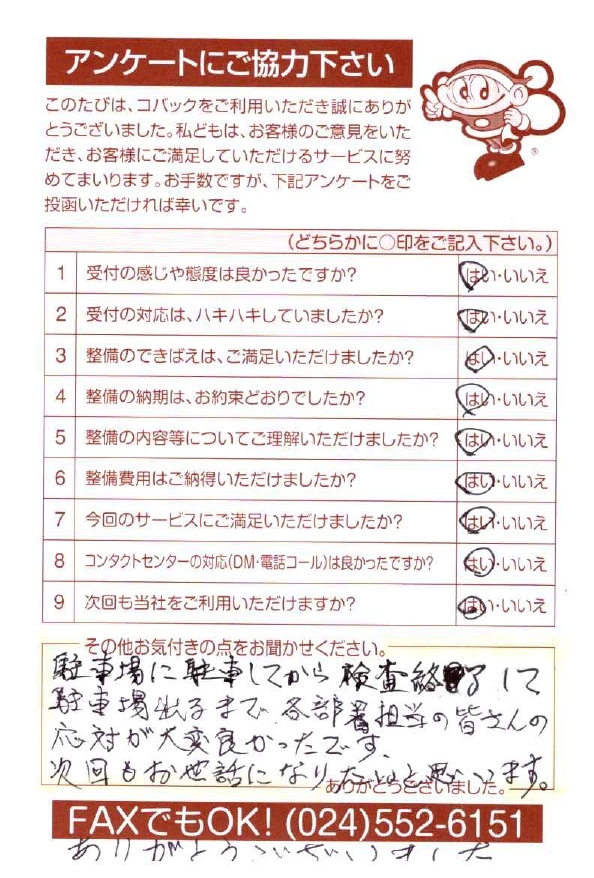 アンケートにご協力下さい
このたびは、コバックをご利用いただき誠にありが
とうございました。私どもは、お客様のご意見をいた
だき、お客様にご満足していただけるサービスに努
めてまいります。お手数ですが、下記アンケートをご
投函いただければ幸いです。
®
(どちらかに○印をご記入下さい。)
1 受付の感じや態度は良かったですか? はい・いいえ
2 受付の対応は、ハキハキしていましたか? はい・いいえ
3 整備のできばえは、ご満足いただけましたか? はい・いいえ
4 整備の納期は、お約束どおりでしたか? はい・いいえ
5 整備の内容等についてご理解いただけましたか? はい・いいえ
6 整備費用はご納得いただけましたか? はい・いいえ
7 今回のサービスにご満足いただけましたか? はい・いいえ
8 コンタクトセンターの対応(DM・電話コール)は良かったですか? はい・いいえ
9 次回も当社をご利用いただけますか? はい・いいえ
その他お気付きの点をお聞かせください。
駐車場に駐車してから検査終了して
駐車場出るまで各部署担当の皆さんの
応対が大変良かったです。
次回もお世話になりたいと思います。
ありがとうございました。
FAXでもOK! (024)552-6151
ありがとうございました